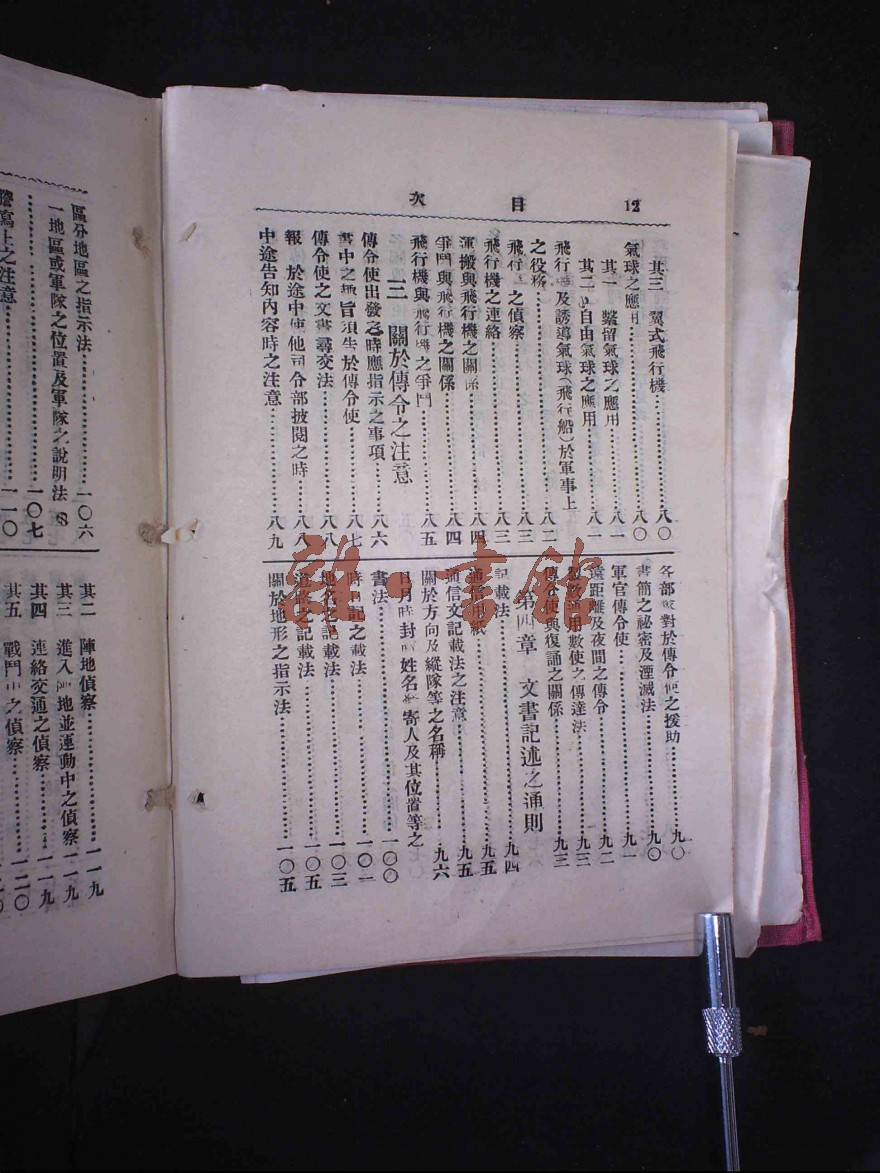 目次
12
其三 翼式飛行機……八〇
氣球之應用……八〇
其一 繫留氣球之應用……八一
其二 自由氣球之應用……八一
飛行機及誘導氣球(飛行船)於軍事上
之役務……八二
飛行 之偵察……八三
飛行機之連絡……八三
運搬與飛行機之關係……八四
爭鬥與飛行機之關係……八四
飛行機與飛行機之爭鬥……八五
三 關於傳令之注意
傳令使出發之時應指示之事項……八六
書中之 旨須告於傳令使……八七
傳令使之文書尋交法……八八
報 於途中使他司令部披閱之時……八八
中途告知內容時之注意……八九
各部 對於傳令使之援助……九〇
書簡之祕密及湮滅法……九〇
軍官傳令使……九一
遠距離及夜間之傳令……九二
用數使之傳達法……九三
傳令使與復誦之關係……九三
第四章 文書記述之通則
記載法……九四
通信用紙……九五
通信文記載法之注意……九五
關於方向及縱隊等之名稱……九六
日月時封 姓名 寄人及其位置等之
書法……一〇〇
時日記之載法……一〇二
地名之記載法……一〇三
道路之記載法……一〇五
關於地形之指示法……一〇五
區分地區之指示法……一〇六
一地區或軍隊之位置及軍隊之說明法
……一〇七
謄寫上之注意……一一〇
其二 陣地偵察……一一九
其三 進入 地並運動中之偵察……一一九
其四 連絡交通之偵察……一一九
其五 戰鬥中之偵察……一二〇
雜·書館